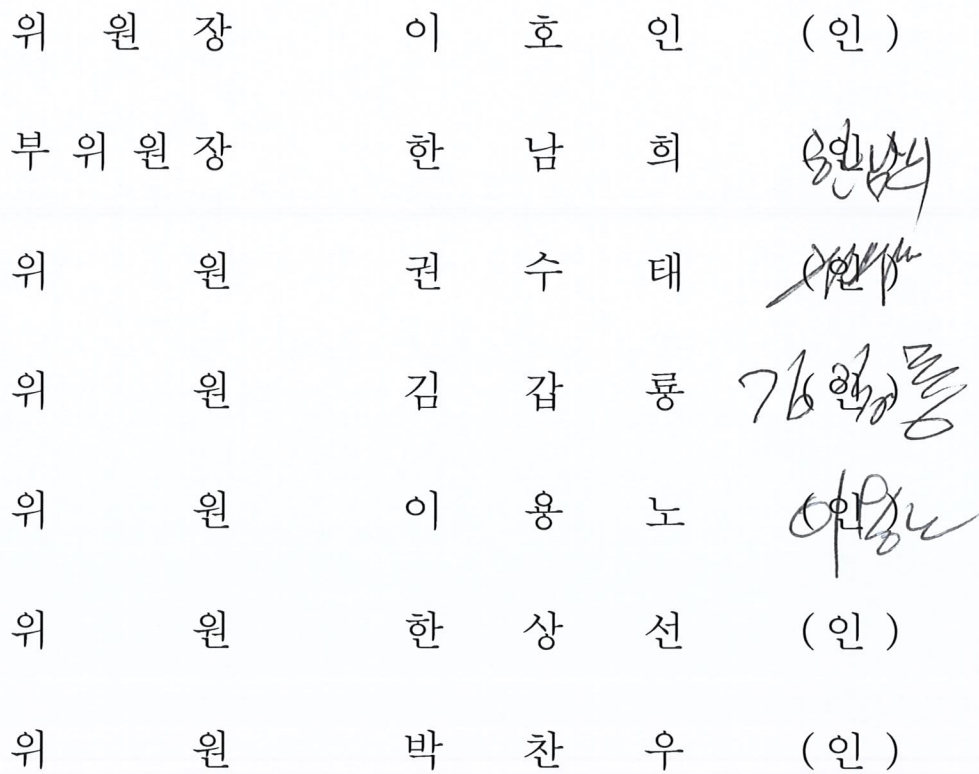 위 원 장 이 호 인 ( 인 )
부 위 원 장 한 남 희 (인) 한남희
위 원 권 수 태 (인)
위 원 김 갑 룡 (인) 김갑룡
위 원 이 용 노 (인) 이용노
위 원 한 상 선 ( 인 )
위 원 박 찬 우 ( 인 )